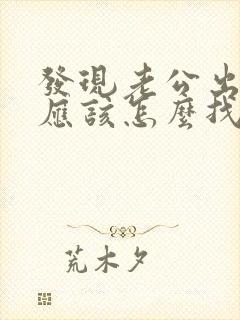 發現老公出
應該怎麼找
荒木夕